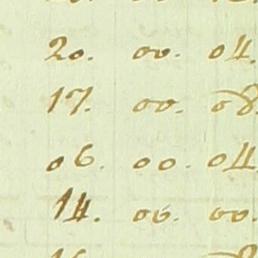 20. 00. 04.
17. 00. 08.
06. 00. 04.
14. 00. 00.